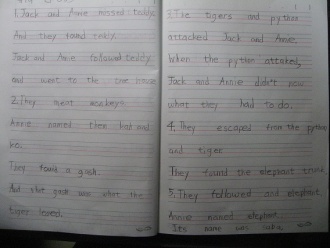 1. Jack and Annie missed teddy.
And they found teddy.
Jack and Annie followed teddy
and went to the tree house
2. They meet monkeys.
Annie named them Kah and
Ko.
They found a gash.
And the gash was what the
tiger loved.
3. The tigers and python
attacked Jack and Annie.
When the python attaked,
Jack and Annie didn't now
what they had to do.
4. They escaped from the python
and tiger
They found the elephant trunk.
5. They followed and elephant.
Annie named elephant.
Its name was Saba.